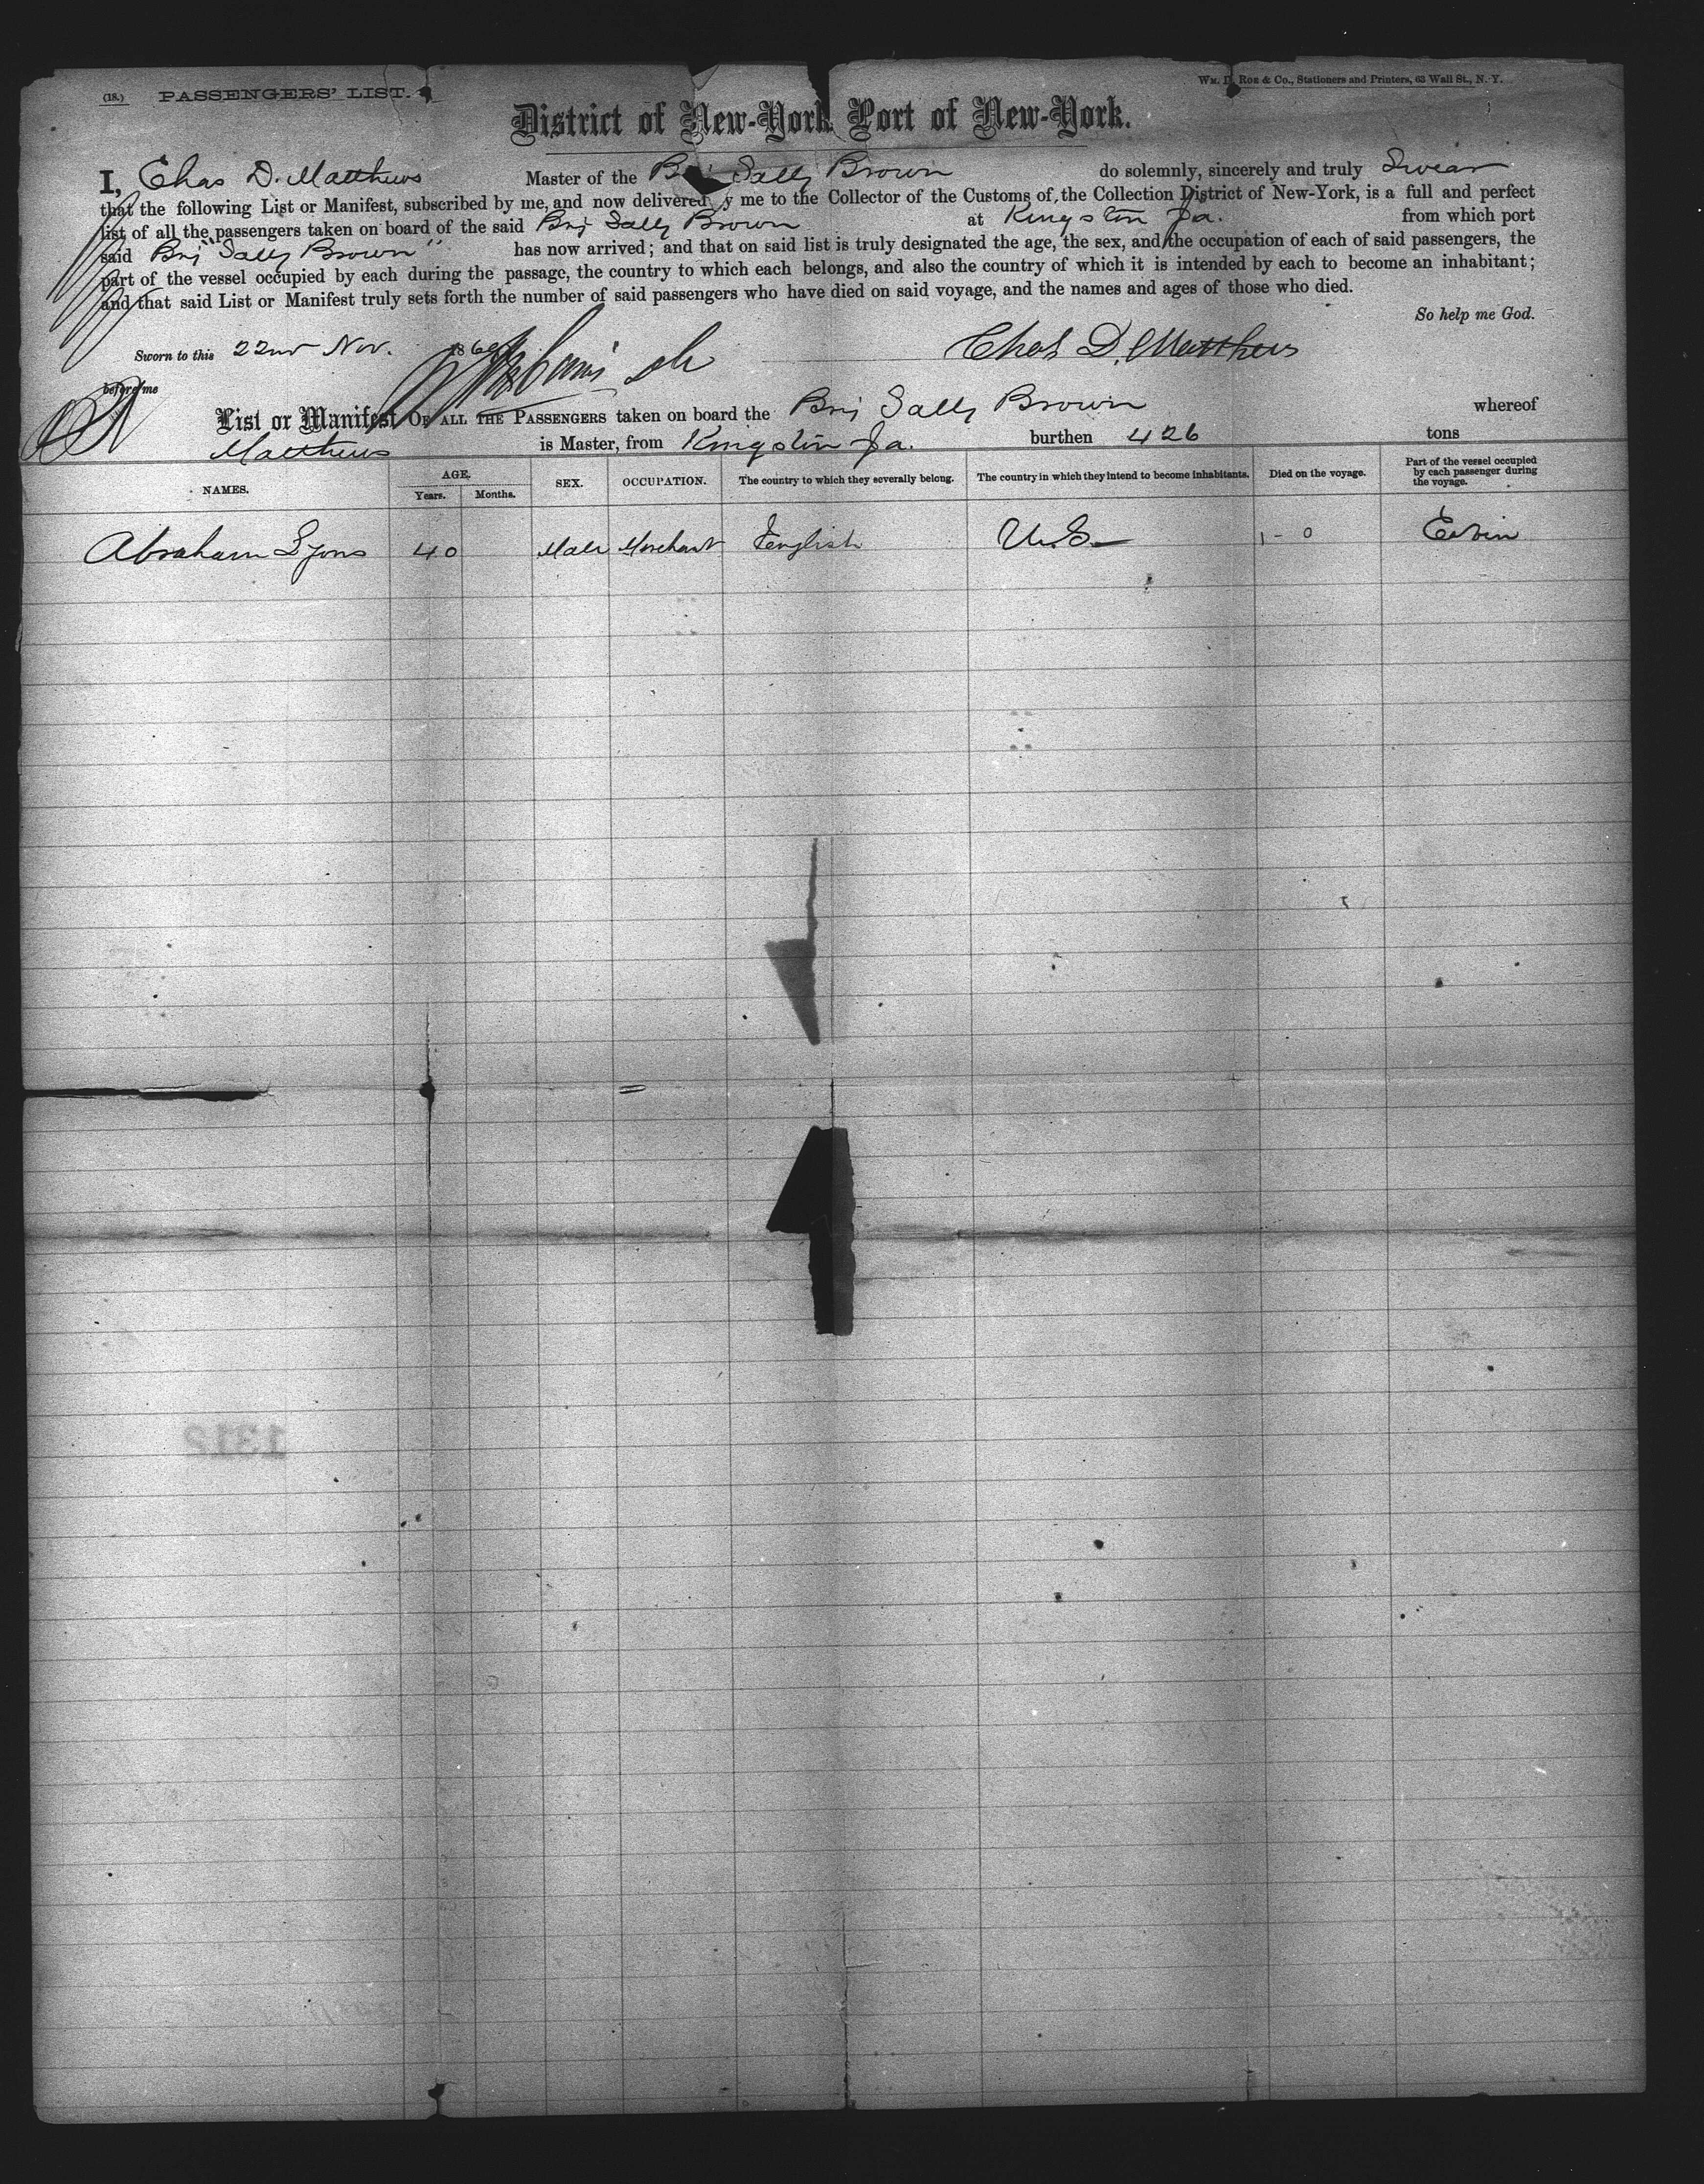 (18.) PASSENGERS' LIST.
Wm. D. Roe & Co., Stationers and Printers, 63 Wall St., N. Y.
District of New-York Port of New-York.
I, Chas D. Matthews Master of the Brig Sally Brown do solemnly, sincerely and truly Swear
that the following List or Manifest, subscribed by me, and now delivered by me to the Collector of the Customs of the Collection District of New-York, is a full and perfect
list of all the passengers taken on board of the said Brig Sally Brown at Kingston Ja. from which port
said Brig "Sally Brown" has now arrived; and that on said list is truly designated the age, the sex, and the occupation of each of said passengers, the
part of the vessel occupied by each during the passage, the country to which each belongs, and also the country of which it is intended by each to become an inhabitant;
and that said List or Manifest truly sets forth the number of said passengers who have died on said voyage, and the names and ages of those who died.
So help me God.
Sworn to this 22nd Nov. 186
Chas D. Matthews
before me
List or Manifest OF ALL THE PASSENGERS taken on board the Brig Sally Brown whereof
Matthews is Master, from Kingston Ja. burthen 426 tons
NAMES. AGE. Years. Months. SEX. OCCUPATION. The country to which they severally belong. The country in which they intend to become inhabitants. Died on the voyage. Part of the vessel occupied by each passenger during the voyage.
Abraham Lyons 40 Male Merchant English U.S. 0 Cabin
1312